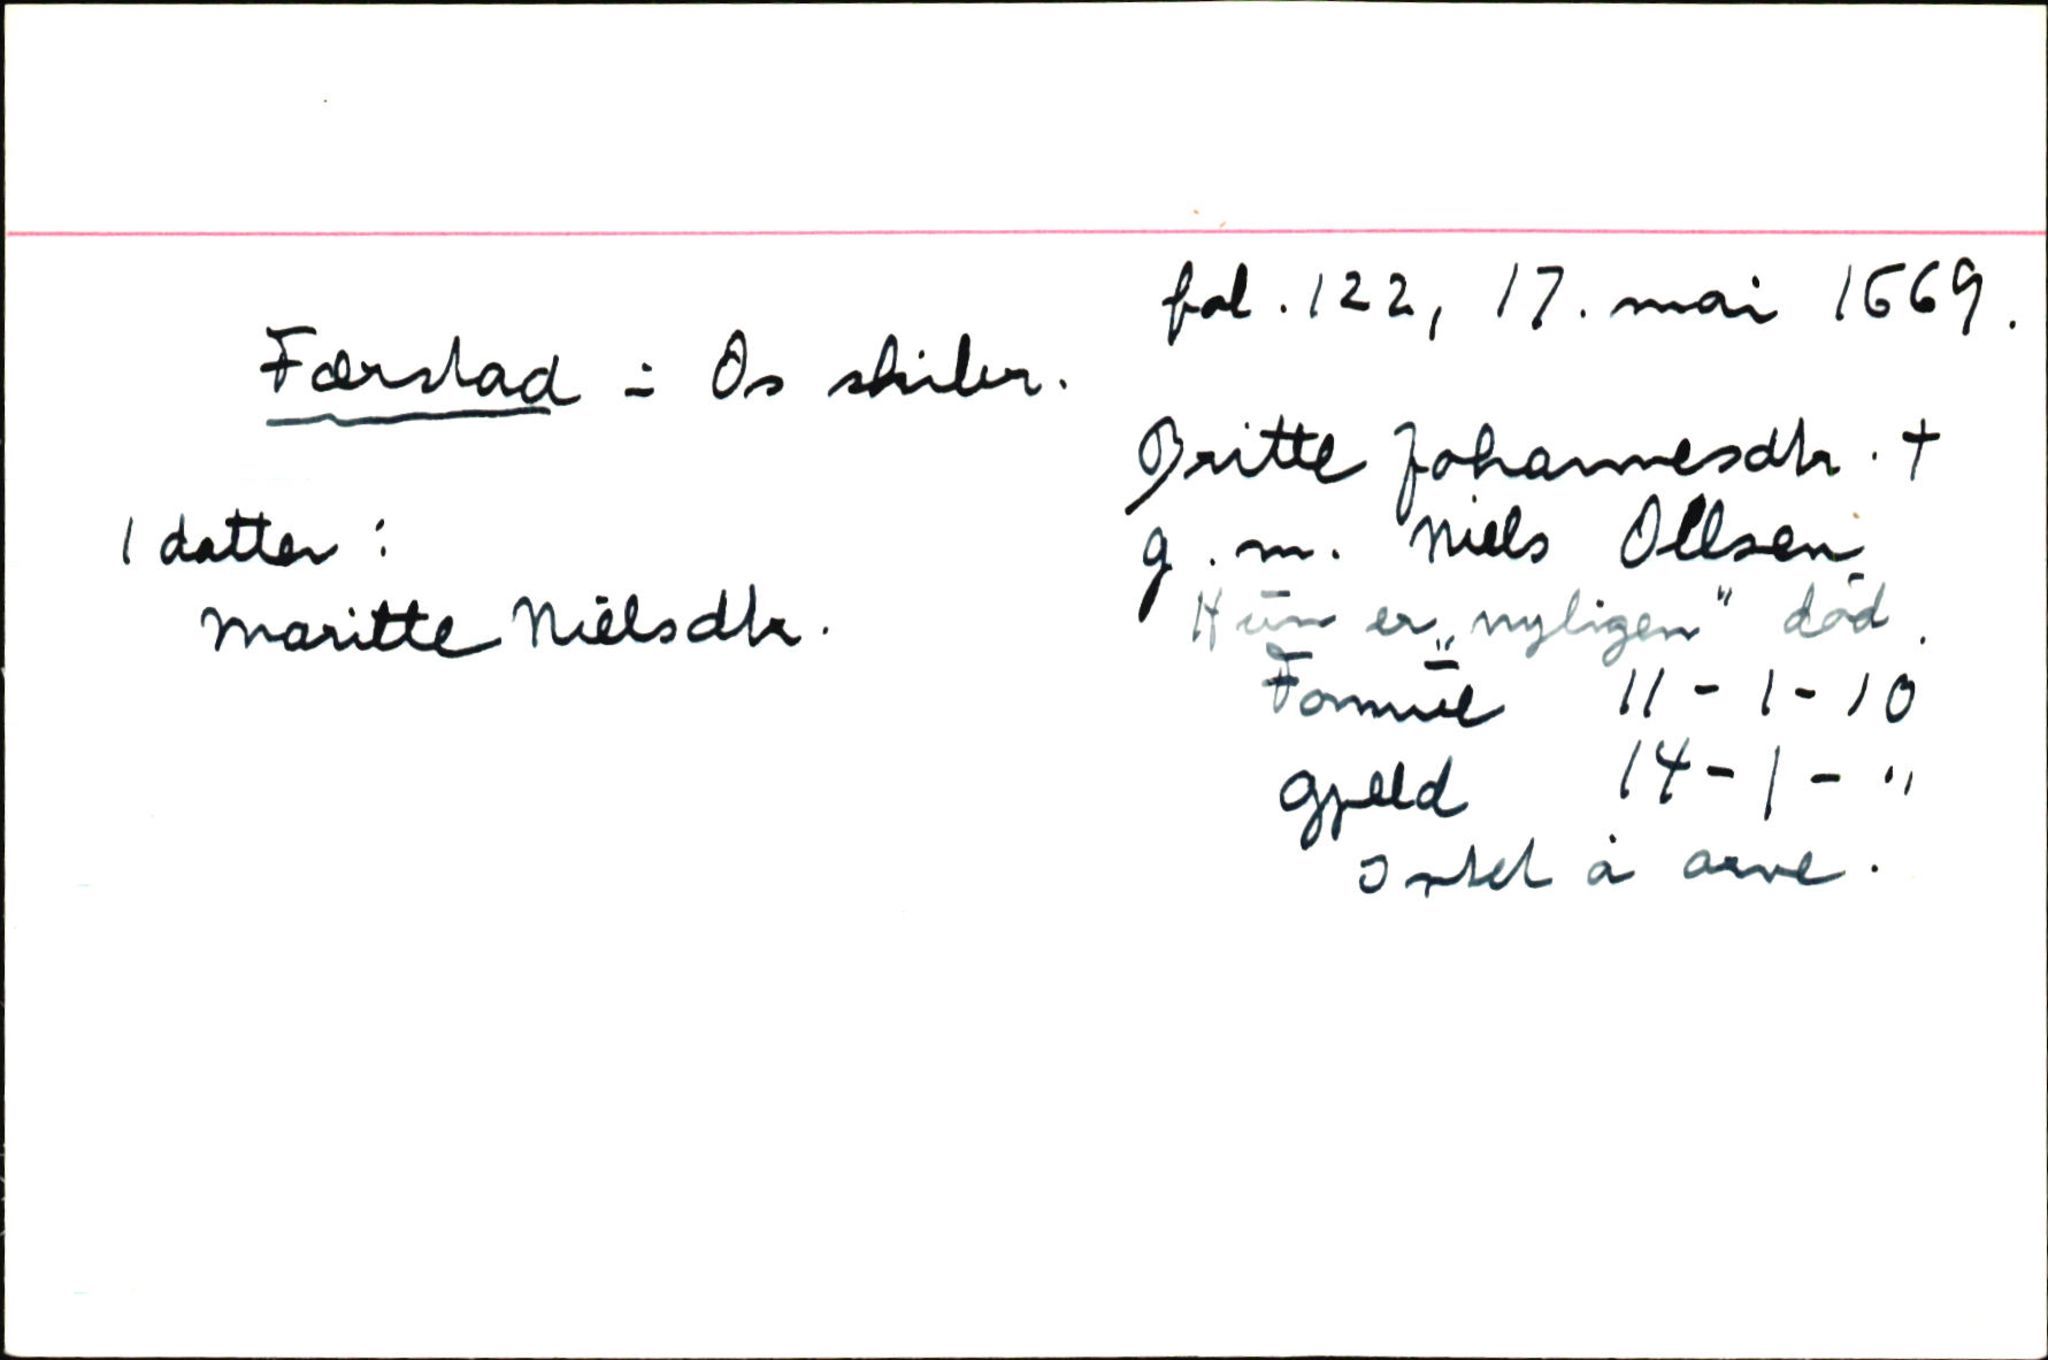 fol. 122, 17. mai 1669.
Færstad = Os skiber.
Britte Johannesdtr. †
g. m. Niels Ollsen
Hun er „nyligen" död.
Formue 11-1-10
Gjeld 14-1-"
Intet å arve.
1 datter:
Maritte Nielsdtr.